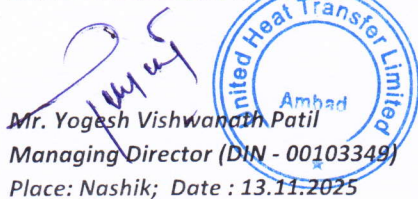 United Heat Transfer Limited
Ambad
Mr. Yogesh Vishwanath Patil
Managing Director (DIN - 00103349)
Place: Nashik; Date : 13.11.2025